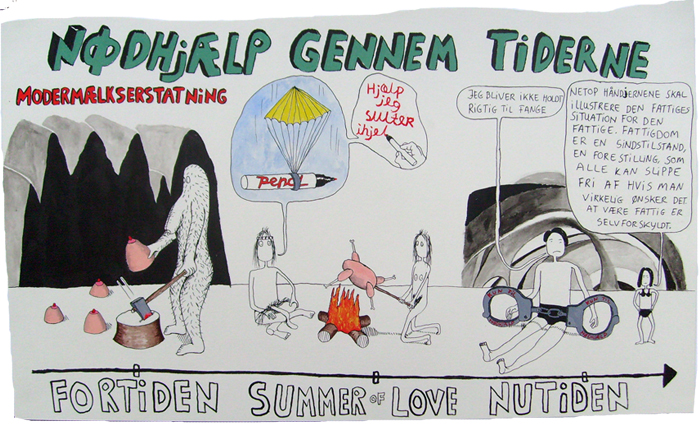 NØDHJÆLP GENNEM TIDERNE
MODERMÆLKSERSTATNING
Hjælp
jeg
sulter
ihjel
penol
JEG BLIVER IKKE HOLDT
RIGTIG TIL FANGE
NETOP HÅNDJERNENE SKAL
ILLUSTRERE DEN FATTIGES
SITUATION FOR DEN
FATTIGE. FATTIGDOM
ER EN SINDSTILSTAND,
EN FORESTILLING, SOM
ALLE KAN SLIPPE
FRI AF HVIS MAN
VIRKELIG ØNSKER DET.
AT VÆRE FATTIG ER
SELVFORSKYLDT.
FORTIDEN SUMMER OF LOVE NUTIDEN